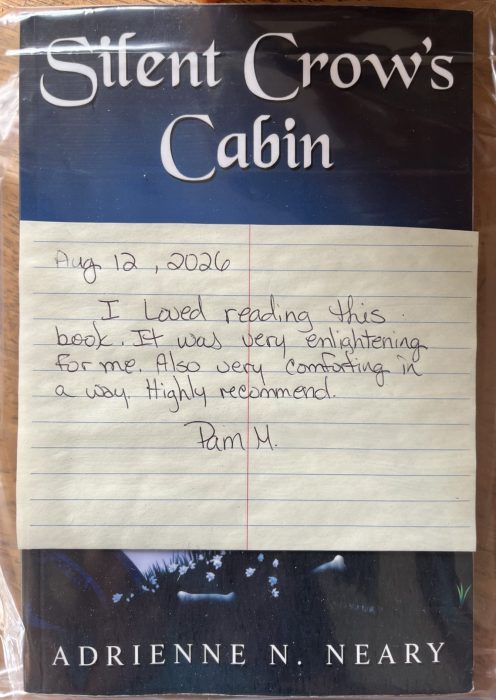 Silent Crow's
Cabin
Aug 12, 2026
I Loved reading this
book. It was very enlightening
for me. Also very comforting in
a way. Highly recommend.
Pam M.
ADRIENNE N. NEARY